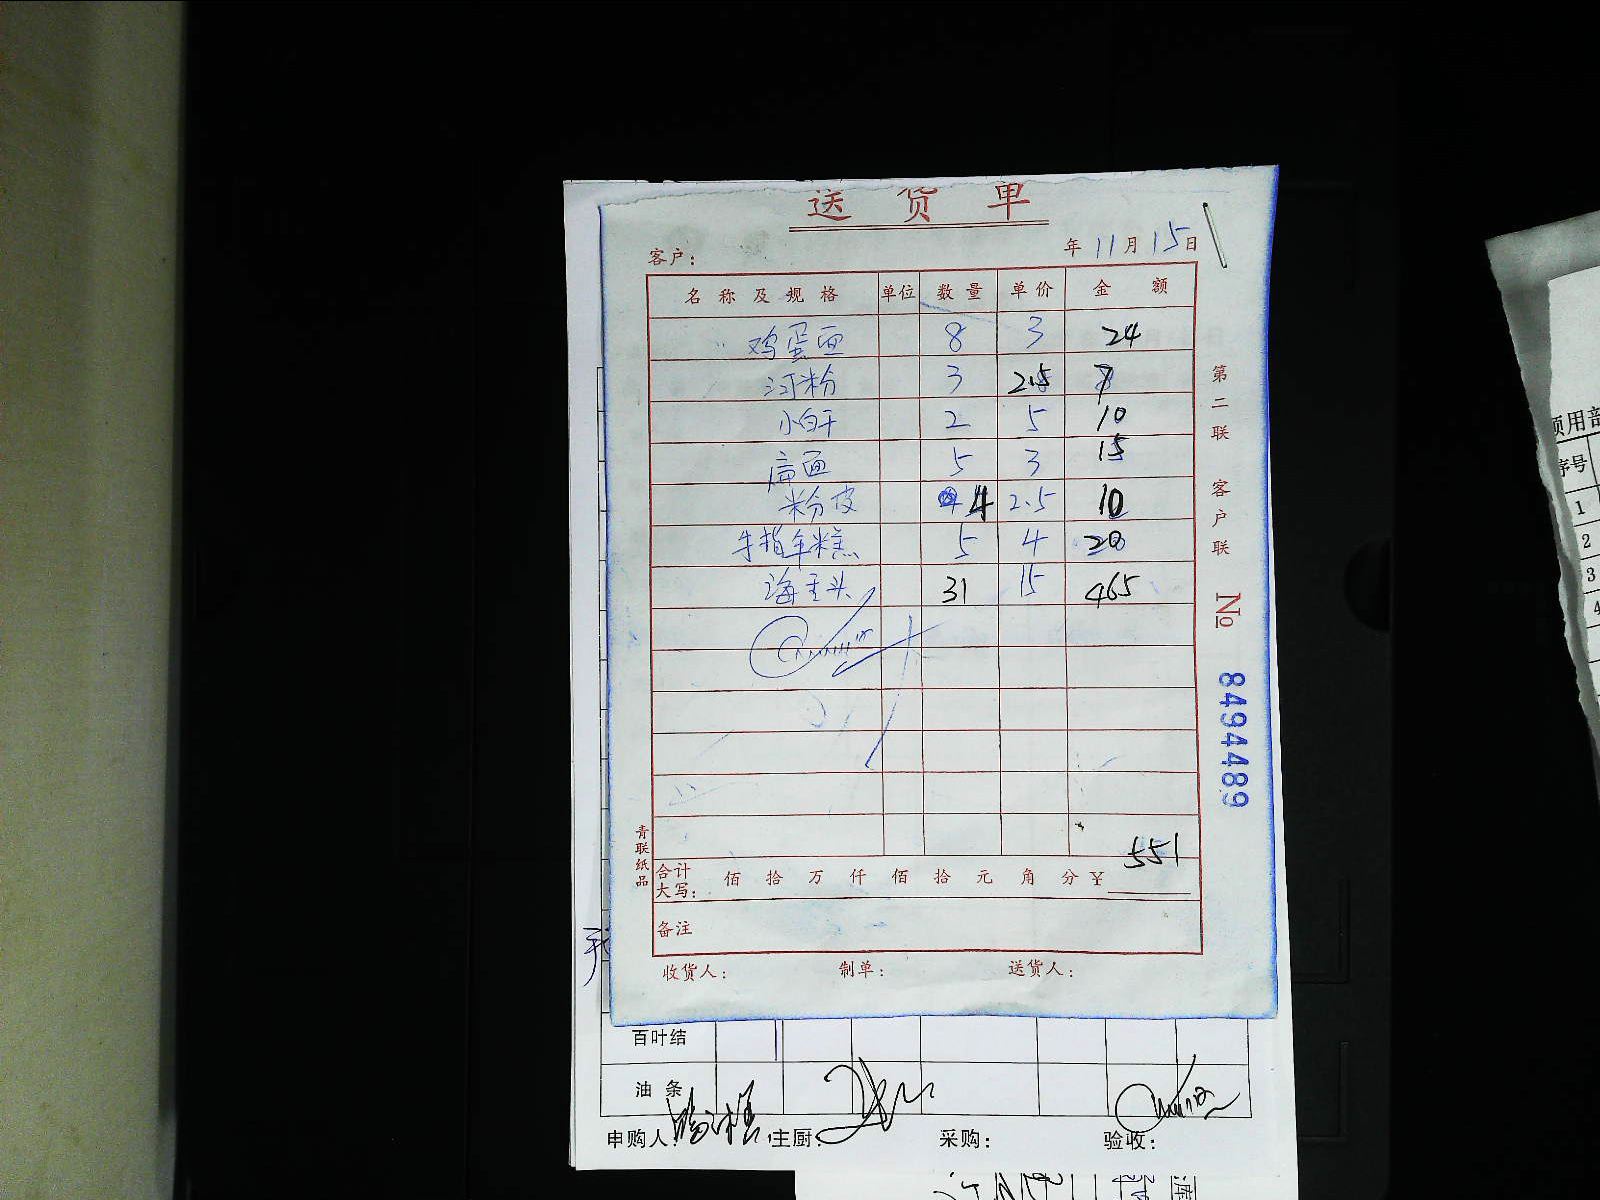 送 货 单
客户: 年 11 月 15 日
名 称 及 规 格 单位 数 量 单 价 金 额
鸡蛋面 8 3 24
河粉 3 2.5 7
小白干 2 5 10
面 5 3 15
粉皮 4 2.5 10
手指年糕 5 4 20
海 头 31 15 465
551
合计大写: 佰 拾 万 仟 佰 拾 元 角 分 ¥
备注
收货人: 制单: 送货人:
青联纸品
第二联 客户联
№ 8494489
百叶结
油 条
申购人: 主厨: 采购: 验收:
领用部
序号
1
2
3
4
库